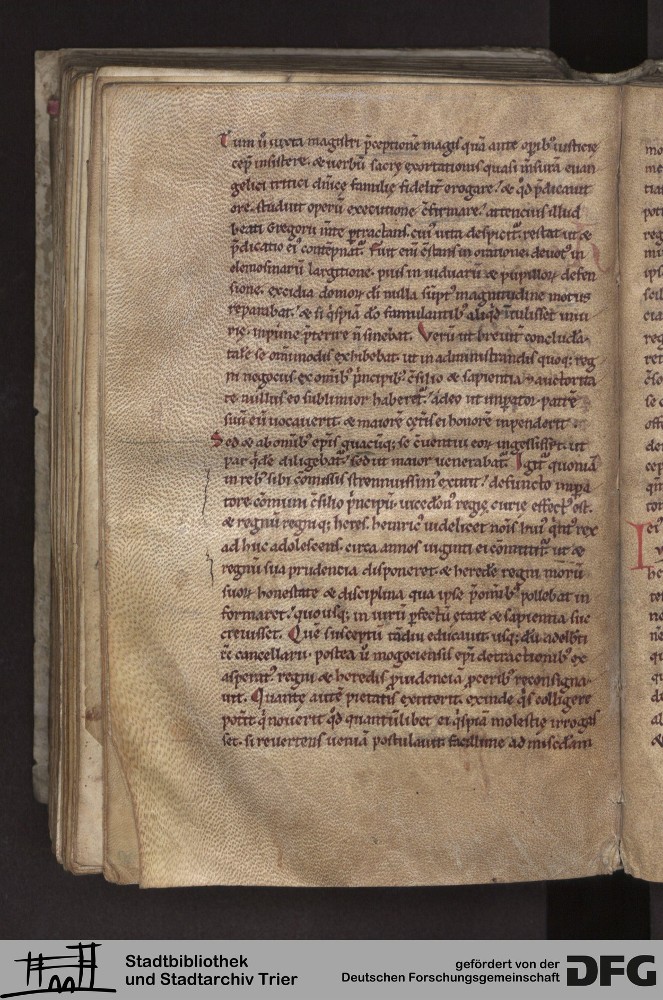 Tum ũ iuxta magistri p̃ceptionẽ magis quã ante opib᷒ iusticię
cep̃ insistere. & uerbũ sacrę exortationis quasi m̃surã euan
gelici tritici dñicę familię fidelit̃ erogare. & qđ p̃dicauit
ore. studuit operũ executione c̃firmare. attencius illud
beati Gregorii m̃te p̃tractans. cui᷒ uita despicit᷒. restat ut &
p̃dicatio ei᷒ contẽpnat᷒. Fuit eni c̃stans in oratione. deuot᷒ in
elemosinarũ largitione. pius in uiduarũ & pupillor̃ defen
sione. excidia domor̃ di nulla sũpt᷒ magnitudine motus
reparabat. & si q̃spiã do famulantib᷒ aliqđ ĩtulisset iniu
rię. inpune p̃terire ñ sinebat. Verũ ut breuit̃ concludã.
tale se om̃imodis exhibebat. ut in administrandis quoq; reg
ni negociis ex omib᷒ p̃ncipib᷒. c̃silio & sapientia & auctorita
te nullus eo sublimior haberet᷒. adeo ut imperator patrẽ
suũ eũ uocauerit. & maiorẽ cet̃is ei honorẽ inpenderit
Sed & ab omib᷒ ep̃is quacũq; se c̃uentui eor̃ ingessisset. ut
par qde diligebat᷒. sed ut maior uenerabat᷒. Igit᷒ quoniã
in reb᷒ sibi c̃missis strennuissim᷒ extitit. defuncto impa
tore. cõmuni c̃silio p̃ncipũ. uicedon᷒ regię curię effect᷒ est.
& regnũ regniq; heres. henric᷒ uidelicet nõis hui᷒ q̃nt᷒ rex
adhuc adolescens. circa annos uiginti ei cõmittit᷒. ut &
regnũ sua prudencia disponeret. & heredẽ regni morũ
suor̃ honestate & disciplina qua ipse p̃ omib᷒ pollebat in
formaret. quousq; in uirũ p̃fectũ ętate & sapientia suc
creuisset. Quẽ susceptũ tãdiu educauit. usq; dũ adelb̃ti
t̃c cancellarii. postea ũ mogociensis ep̃i detractionib᷒ ex
asperat᷒. regni & heredis p̃uidenciã p̃cerib᷒ reconsigna
uit. Quantę autẽ pietatis extiterit. exinde q̃s colligere
potit q̃ nouerit qđ quantũlibet ei q̃spiã molestię irrogas
set. si reuertens ueniã postulauit. facillime ad mis̃cdam
Stadtbibliothek
und Stadtarchiv Trier
gefördert von der
Deutschen Forschungsgemeinschaft
DFG